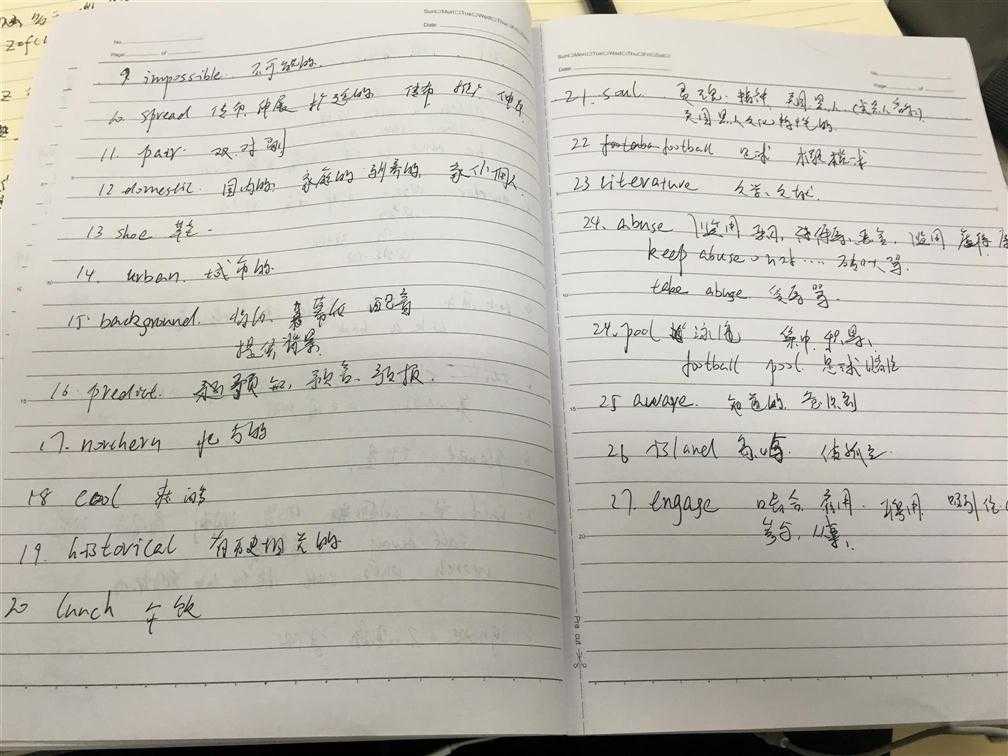 Sun□Mon□Tue□Wed□Thu□
No.
Date:
Page: of
z=f(
9 impossible. 不可能的.
spread 传布 伸展 传布 推广
11. pair 双.对
12 domestic. 国内的 家庭的 驯养的
13 shoe 鞋.
14. urban. 城市的
15. background. 幕后 配音
提供背景.
16 predict. 预知, 预言. 预报.
17. northern 北方的
18 cool
19. historical 有历史相关的
20 lunch 午饭
Sun□Mon□Tue□Wed□Thu□Fri□Sat□
Date:
No.
Page: of
21. soul 灵魂. 精神. 美国黑人
美国黑人文化特性的
22 football 足球 橄榄球
23 literature 文学.文献.
24. abuse 滥用 滥用 虐待
keep abuse on 对....
take abuse 受辱骂.
24. pool 泳池 集中. 积累.
football pool 足球赌注
25 aware. 知道的. 意识到
26 island 岛屿. 使孤立.
27. engage 啮合 雇用. 聘用 吸引住
参与, 从事.